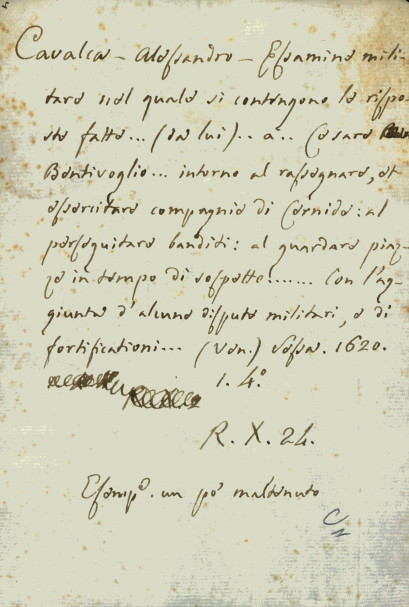 Cavalca - Alessandro - Essamine mili-
tare nel quale si contengono le rispo-
ste fatte... (da lui).. a.. Cesare
Bentivoglio... intorno al rassegnare, et
essercitare compagnie di Cernide: al
perseguitare banditi: al guardare piaz-
ze in tempo di sospetto...... Con l'ag-
giunta d'alcune dispute militari, e di
fortificationi... (Ven.) Sessa. 1620.
1. 4.º
R. X. 24.
Esemp.e un pò maltenuto